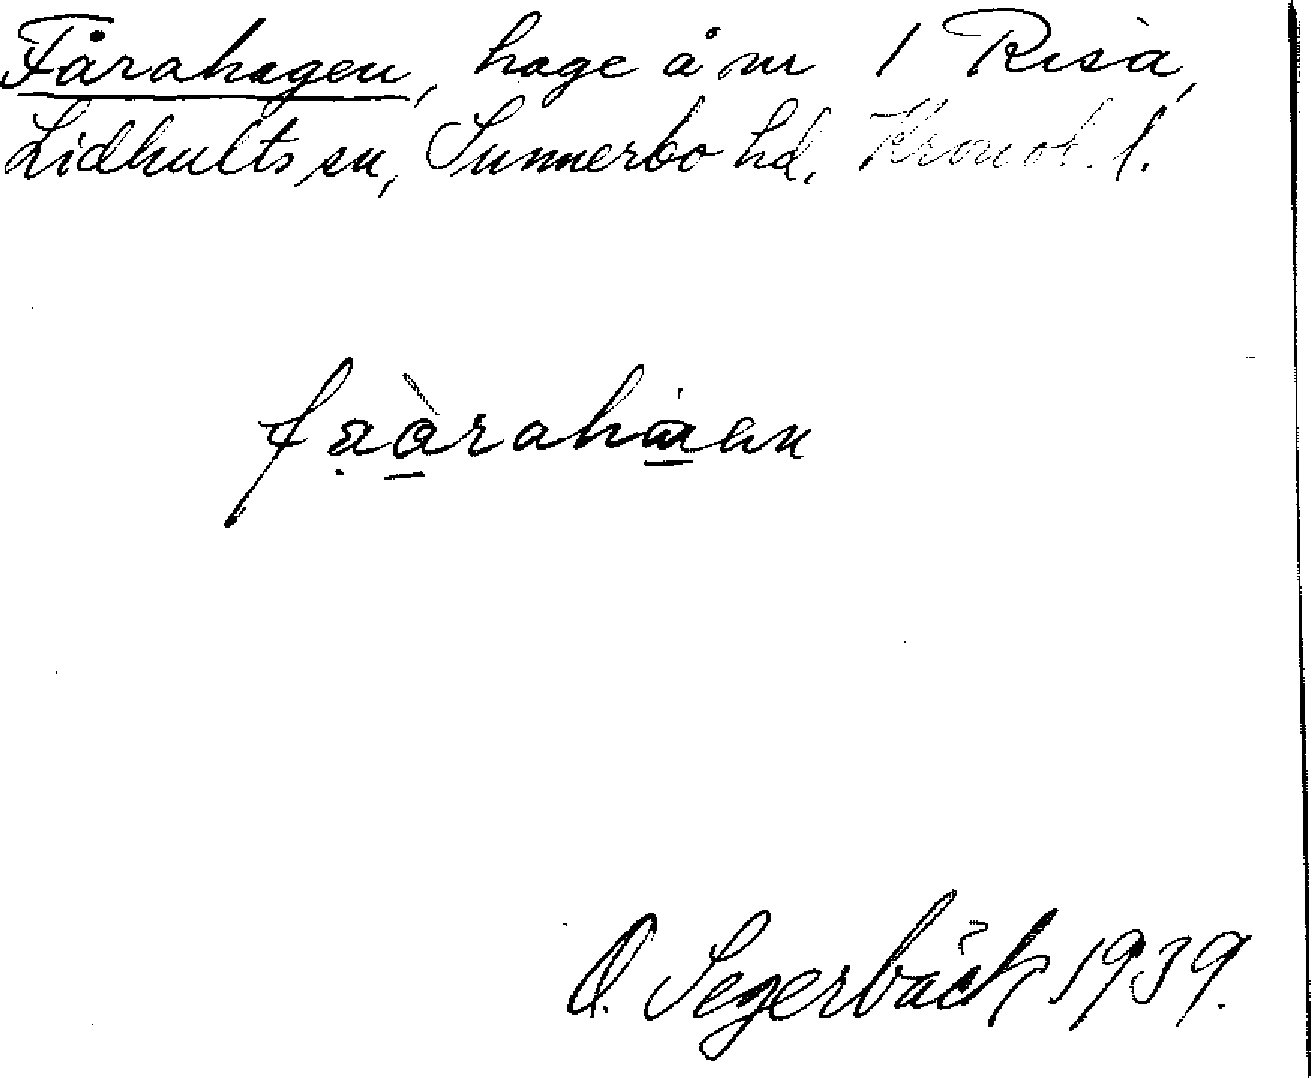 Fårahagen, hage å nr 1 Riså,
Lidhults sn, Sunnerbo hd, Kronob. l.
O. Segerbäck 1939.